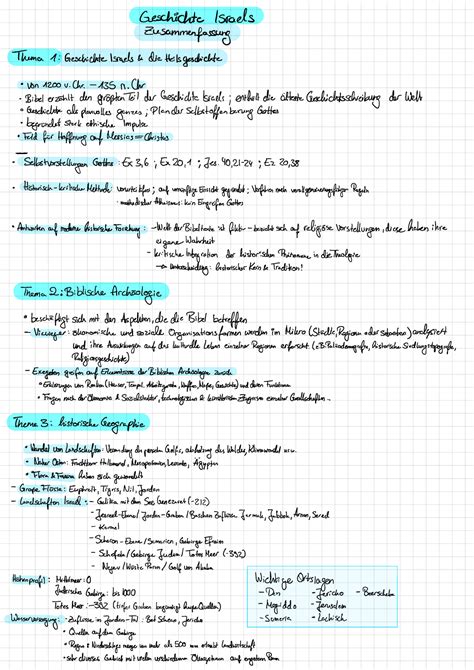 Geschichte Israels
Zusammenfassung
Thema 1: Geschichte Israels & die Heilsgeschichte
• von 1200 v. Chr. – 135 n. Chr
• Bibel erzählt den größten Teil der Geschichte Israels; enthält die älteste Geschichtsschreibung der Welt
• Geschichte als planvolles ganzes; Plan der Selbstoffenbarung Gottes
• begründet stark ethische Impulse
• Feld für Hoffnung auf Messias = Christus
• Selbstvorstellungen Gottes: Ex 3,6 ; Ex 20,1 ; Jes. 40,21-24 ; Ez 20,38
• Historisch-kritische Methode: vorurteilsfrei ; auf vernünftige Einsicht gegründet ; Verfahren nach Regeln
methodischer Atheismus: kein Eingreifen Gottes
• Antworten auf moderne historische Forschung: – Welt der Bibeltexte ist fiktiv – bezieht sich auf religiöse Vorstellungen, diese haben ihre
eigene Wahrheit
– kritische Integration der historischen Phänomene in die Theologie
→ Unterscheidung: historischer Kern & Tradition!
Thema 2: Biblische Archäologie
• beschäftigt sich mit den Aspekten, die die Bibel betreffen
– Vieweger: ökonomische und soziale Organisationsformen werden im Mikro (Städte, Regionen oder ) analysiert
und ihre Auswirkungen auf das kulturelle Leben einzelner Regionen erforscht (z.B. , historische Siedlungstopografie,
Religionsgeschichte)
– Exegeten greifen auf Erkenntnisse der Biblischen Archäologie zurück
• Erklärungen von Realien (Häuser, Tempel, Arbeitsgeräte, Waffen, Töpfe, Gewichte) und deren Funktionen
• Fragen nach der Ökonomie & Sozialstruktur, technologischen & künstlerischen Zeugnissen einzelner Gesellschaften
Thema 3: historische Geographie
• Wandel von Landschaften: Versandung des persischen Golfs, Abholzung der Wälder, Klimawandel usw.
• Naher Osten: Fruchtbarer Halbmond, Mesopotamien, Levante, Ägypten
• Flora & Fauna haben sich gewandelt
– Große Flüsse: Euphrat, Tigris, Nil, Jordan
– Landschaften Israel: – Galiläa mit dem See Genezaret (-212)
– Jesreel-Ebene / Jordan-Graben / Baschan Zuflüsse: Jarmuk, Jabbok, Arnon, Sered
– Karmel
– Scharon-Ebene / Samarien, Gebirge Efraim
– Schefela / Gebirge Judas / Totes Meer (-392)
– Negev / Wüste Paran / Golf von Akaba
Höhenprofil: Mittelmeer: 0
Judäisches Gebirge: bis 1000
Totes Meer: -392 (tiefer Graben begünstigt Quellen)
Wasserversorgung: – Zuflüsse in Jordan-Tal: Bet Schean, Jericho
• Quellen auf dem Gebirge
• Regen: Niederschläge mehr als 500 mm Landwirtschaft
• sehr diverses Gebiet mit vielen verschiedenen Ökosystemen auf engstem Raum
Wichtige Ortslagen
– Dan – Jericho – Beerscheba
– Megiddo – Jerusalem
– Samaria – Lachisch